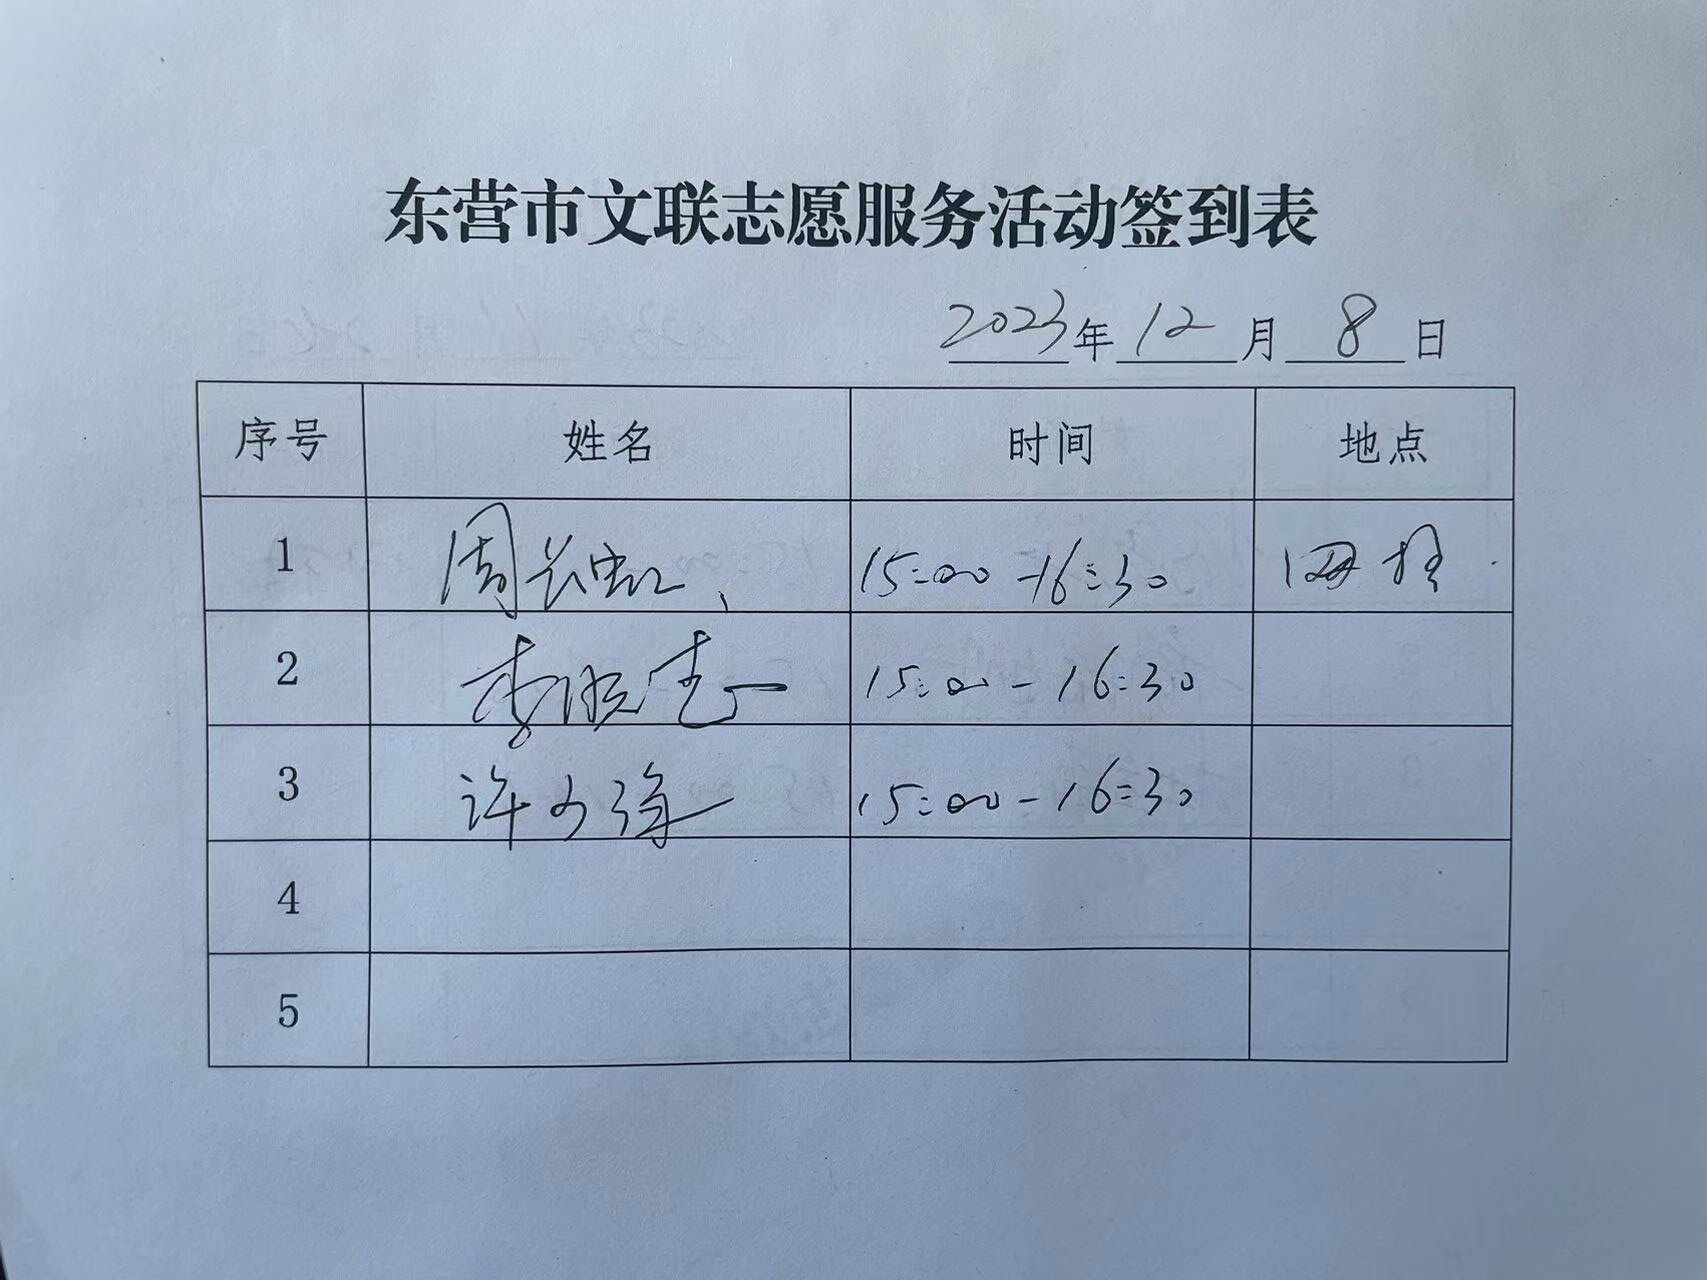 东营市文联志愿服务活动签到表
2023年12月8日
序号 姓名 时间 地点
1 周长虹 15:00-16:30
2 李 15:00-16:30
3 许 15:00-16:30
4
5